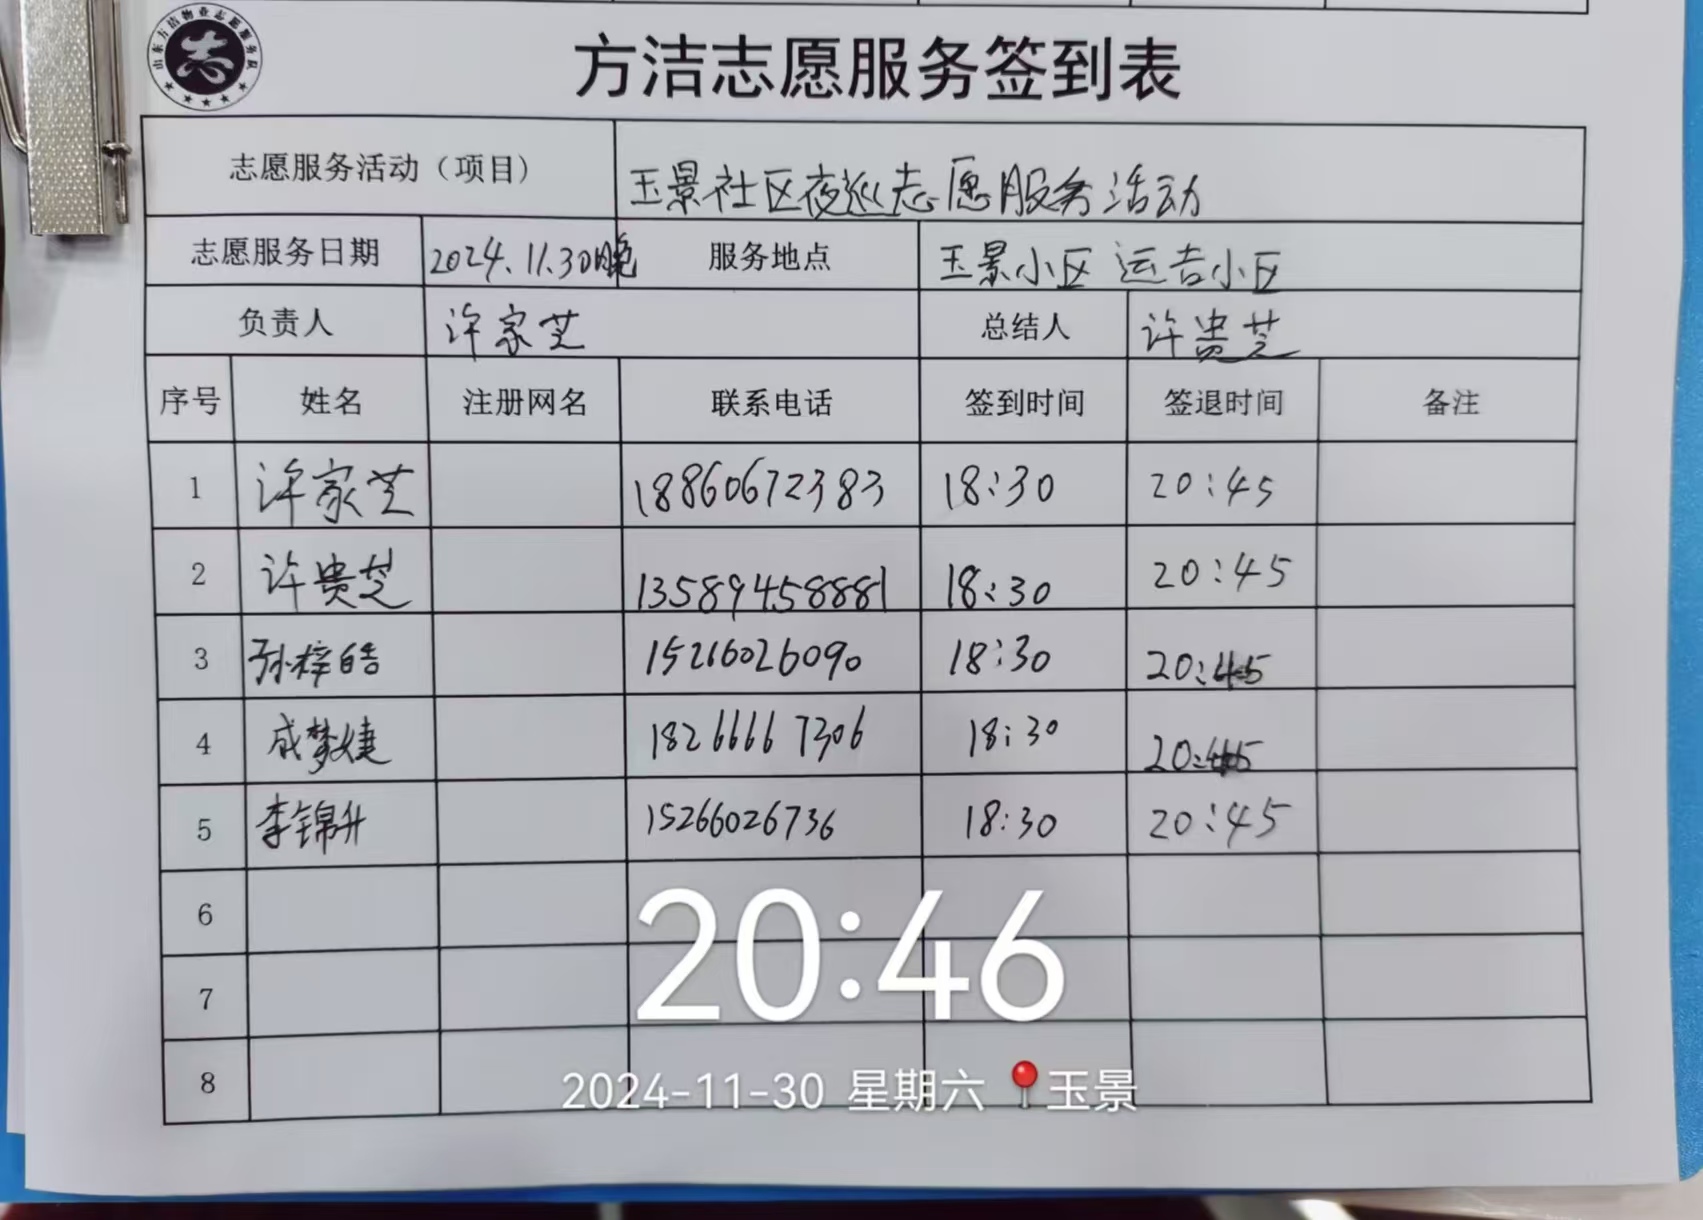 山东方洁物业志愿服务队
志
方洁志愿服务签到表
志愿服务活动（项目） 玉景社区夜巡志愿服务活动
志愿服务日期 2024.11.30晚 服务地点 玉景小区 运吉小区
负责人 许家芝 总结人 许贵芝
序号 姓名 注册网名 联系电话 签到时间 签退时间 备注
1 许家芝 18860672383 18:30 20:45
2 许贵芝 13589458881 18:30 20:45
3 孙梓皓 15266026090 18:30 20:45
4 成梦婕 18266667306 18:30 20:45
5 李锦升 15266026736 18:30 20:45
6
7
8
20:46
2024-11-30 星期六 玉景